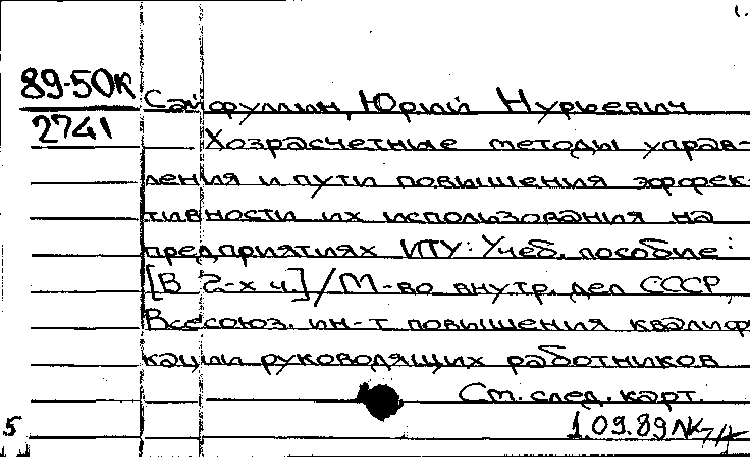 89-50К
2741
Сайфуллин, Юрий Нурьевич
Хозрасчетные методы управ-
ления и пути повышения эффек-
тивности их использования на
предприятиях ИТУ: Учеб. пособие:
[В 2-х ч.]/М-во внутр. дел СССР,
Всесоюз. ин-т повышения квалифи-
кации руководящих работников
См. след. карт.
5
1.09.89